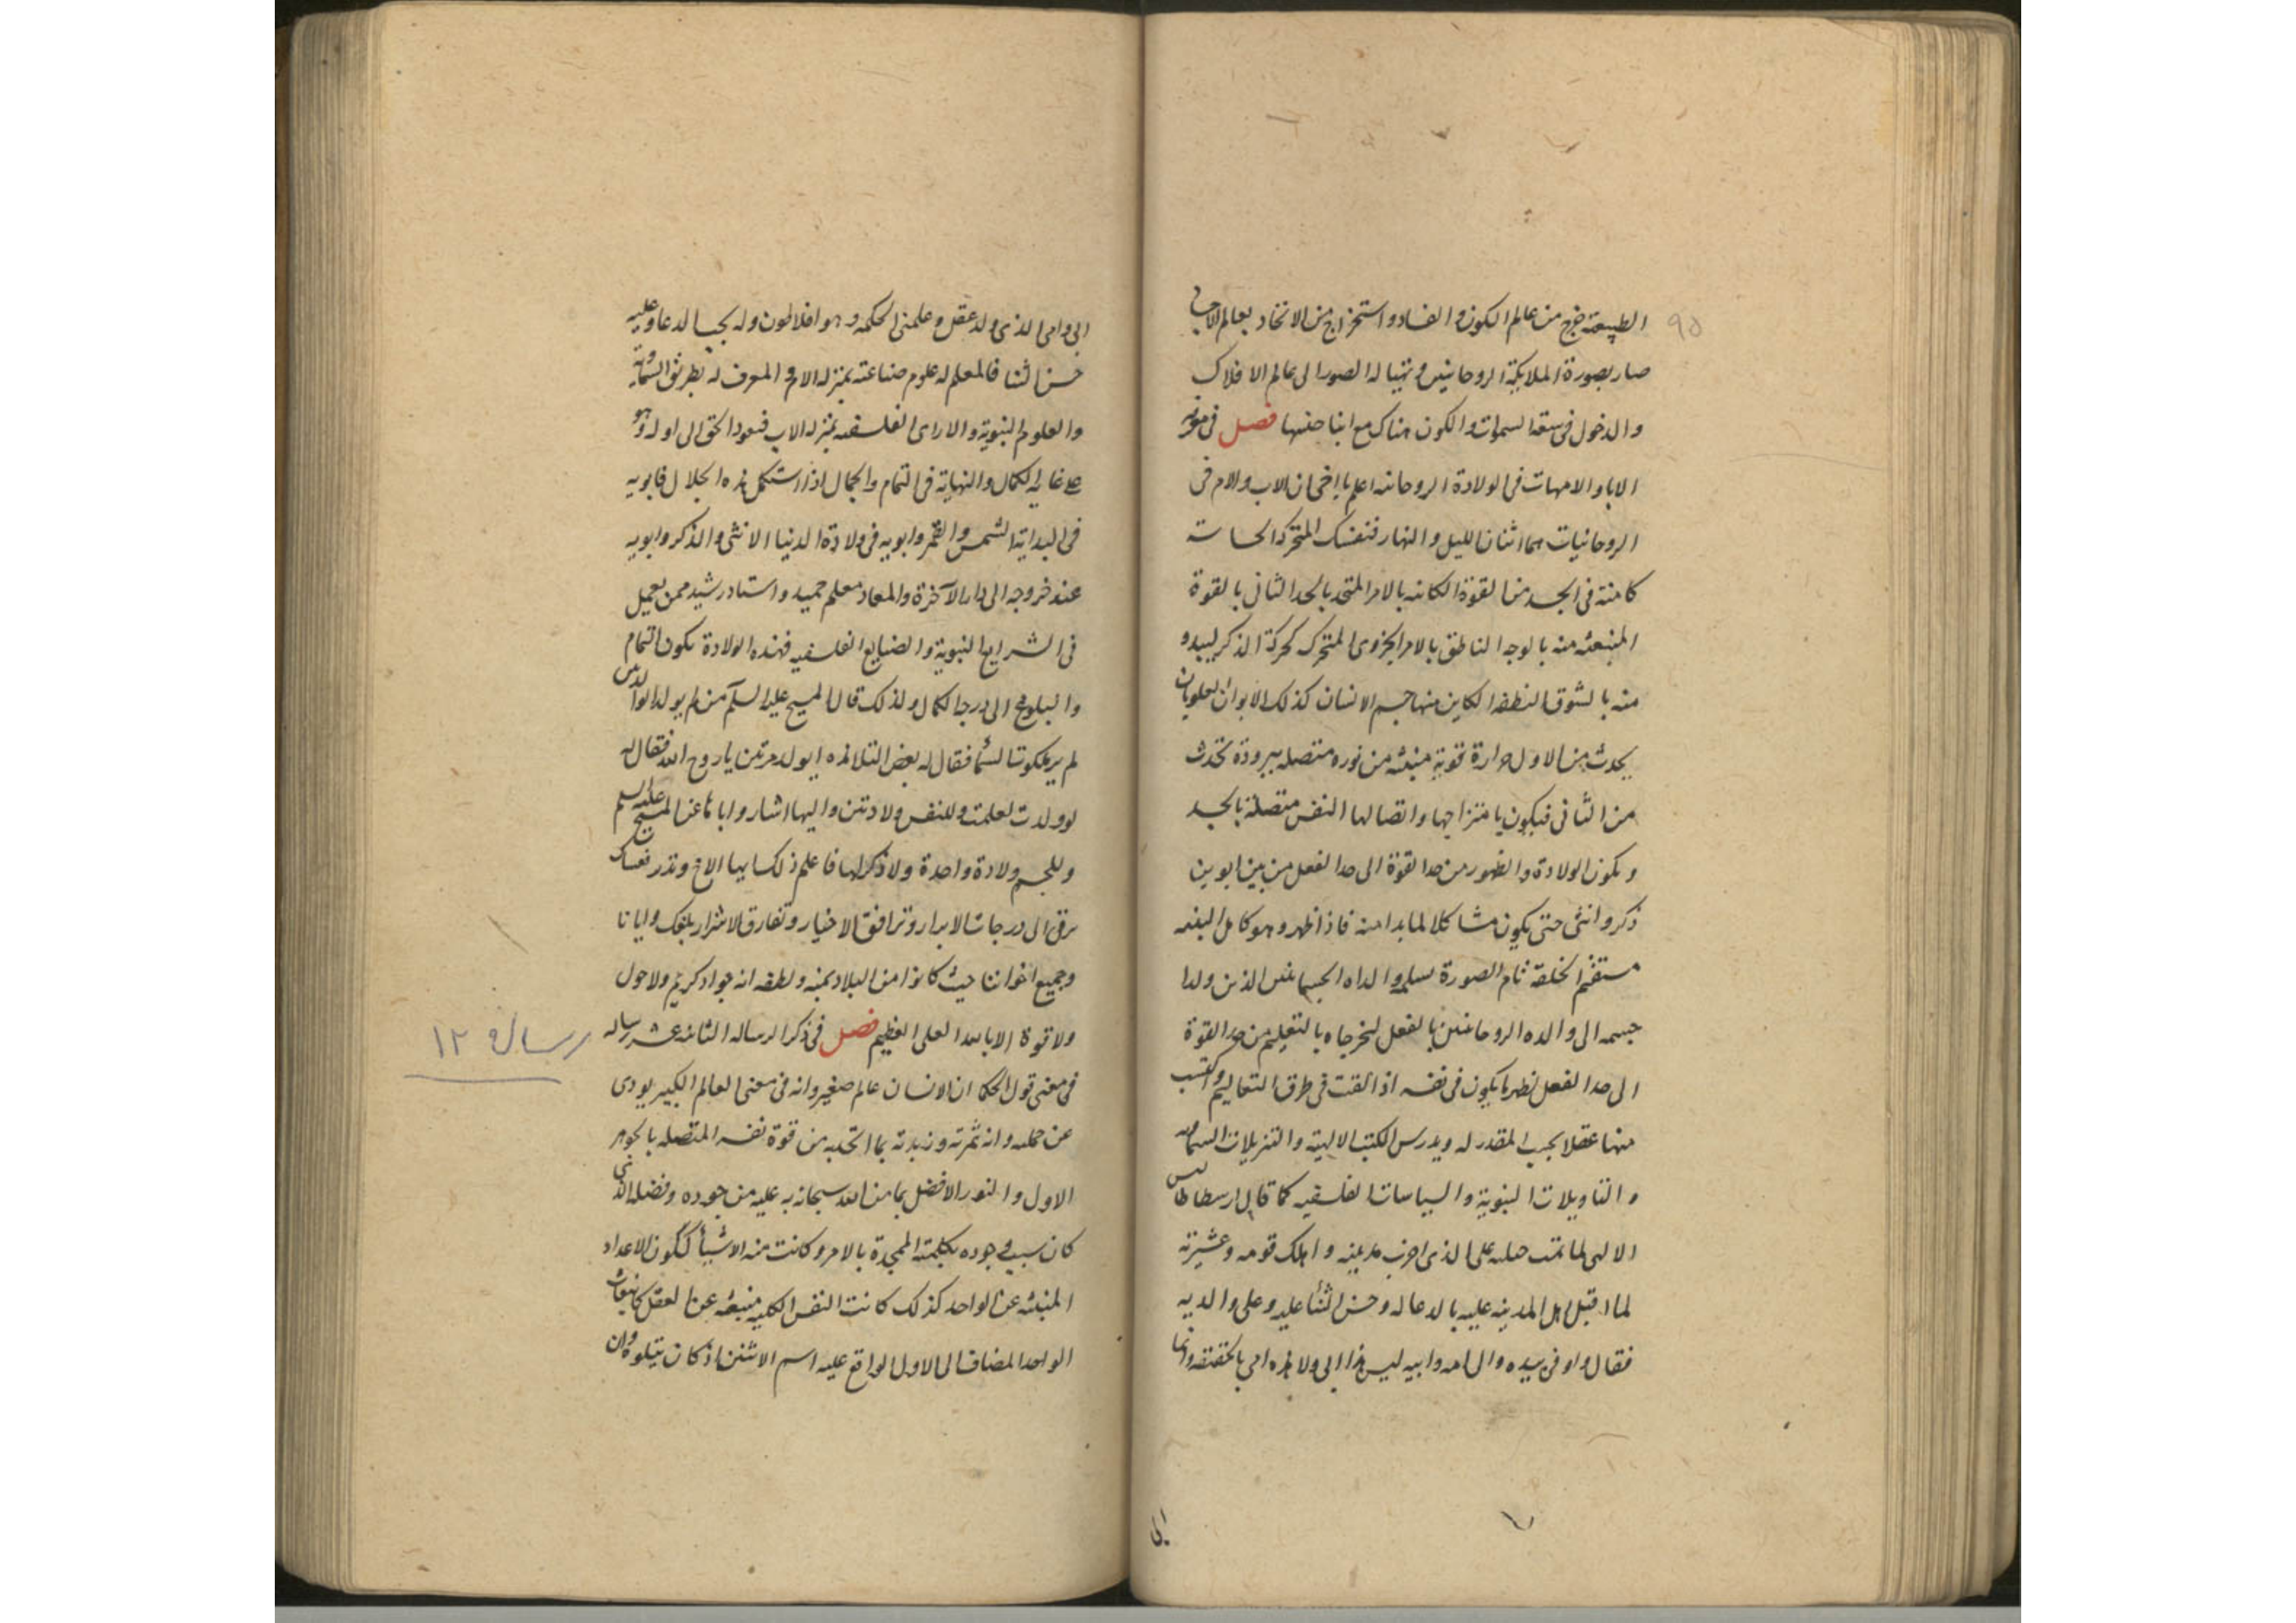 ٩٥
الطبيعة خرج من عالم الكون و الفساد و استخراج من الاتحاد بعالم الاجسا
صار بصورة الملايكة الروحانيين و تهيا له الصور الى عالم الافلاك
و الدخول فى سعة السموات و الكون هناك مع ابنا جنسها فصل فى معرفة
الابا و الامهات فى الولادة الروحانيه اعلم يا اخى ان الاب و الام فى
الروحانيات هما اثنان الليل و النهار فنفسك المتحركه الحاسة
كامنة فى الجسد من القوة الكائنه بالامر المتحد بالحد الثانى بالقوة
المنبعثه منه بالوجه الناطق بالامر الجزوى المتحرك كحركة الذكر ليبدو
منه بالشوق النطفه الكاين منها جسم الانسان كذلك الابوان العلويان
يحدث من الاول حرارة قوية منبثه من نوره متصله ببرودة تحدث
من الثانى فيكون بامتزاجها و اتصالها النفس متصلة بالجسد
و يكون الولادة و الظهور من حد القوة الى حد الفعل من بين ابوين
ذكر و انثى حتى يكون مشاكلا لما بدا منه فاذا ظهر و هو كامل البنيه
مستقيم الخلقة تام الصورة سلمه والداه الجسمانيين الذين ولدا
جسمه الى والده الروحانيين بالفعل ليخرجاه بالتعليم من حد القوة
الى حد الفعل ليظهر ما يكون فى نفسه اذا القت فى طرق التعاليم و اكتسب
منها عقلا بحسب المقدر له و يدرس الكتب الالهية و التنزيلات السماويه
و التاويلات النبوية و السياسات الفلسفيه كما قال ارسطاطاليس
الالهى لما تمت حيلته على الذى اخرب مدينته و اهلك قومه و عشيرته
لما اقبل اهل المدينه عليه بالدعا له و حسن الثناء عليه و على والديه
فقال و اومى بيده و الى امه و ابيه ليس هذا ابى و لا هذه امى بالحقيقه و انما
ابى
ابى و امى الذى ولد عقلى و علمنى الحكمه و هو افلاطون و له يجب الدعا و عليه
حسن الثنا فالمعلم له علوم صناعته بمنزله الام و المعرف له بطريق السماوية
و العلوم النبوية و الاراى الفلسفيه بمنزله الاب فنعود الحق الى اوله و هو
على غايه الكمال و النهاية فى التمام و الجمال اذا استكمل هذه الجلال فابويه
فى البداية الشمس و القمر و ابويه فى ولادة الدنيا الانثى و الذكر و ابويه
عند خروجه الى دار الآخرة و المعاد معلم حميد و استاد رشيد ممن يعمل
فى الشرايع النبوية و الصنايع الفلسفيه فهذه الولادة يكون التمام
و البلوغ الى درجة الكمال و لذلك قال المسيح عليه السلم من لم يولد الولادتين
لم ير ملكوت السماء فقال له بعض التلامذه ايولد مرتين يا روح الله فقال له
لو ولدت لعلمت و للنفس ولادتين و اليها اشار و ابانا عن المسيح عليه السلم
و للجسم ولادة واحدة و لا ذكر لها فاعلم ذلك ايها الاخ و تدبر نفسك
ترقى الى درجات الابرار و ترافق الاخيار و تفارق الاشرار بلغك و ايانا
و جميع اخواننا حيث كانوا من البلاد بمنه و لطفه انه جواد كريم و لا حول
و لا قوة الا بالله العلى العظيم فصل فى ذكر الرساله الثانيه عشر رساله
رسالة ١٢
فى معنى قول الحكما ان الانسان عالم صغير و انه فى معنى العالم الكبير يودى
عن جملته و انه ثمرته و زبدته بما اتحد به من قوة نفسه المتصله بالجوهر
الاول و النور الافضل بما من الله سبحانه به عليه من جوده و فضله الذى
كان سبب وجوده بكلمته الممجدة بالامر و كانت منه الاشياء ككون الاعداد
المنبثه عن الواحد كذلك كانت النفس الكليه منبعثه عن العقل كانبعاث
الواحد المضاف الى الاول الواقع عليه اسم الاثنين اذ كان يتلوه و ان